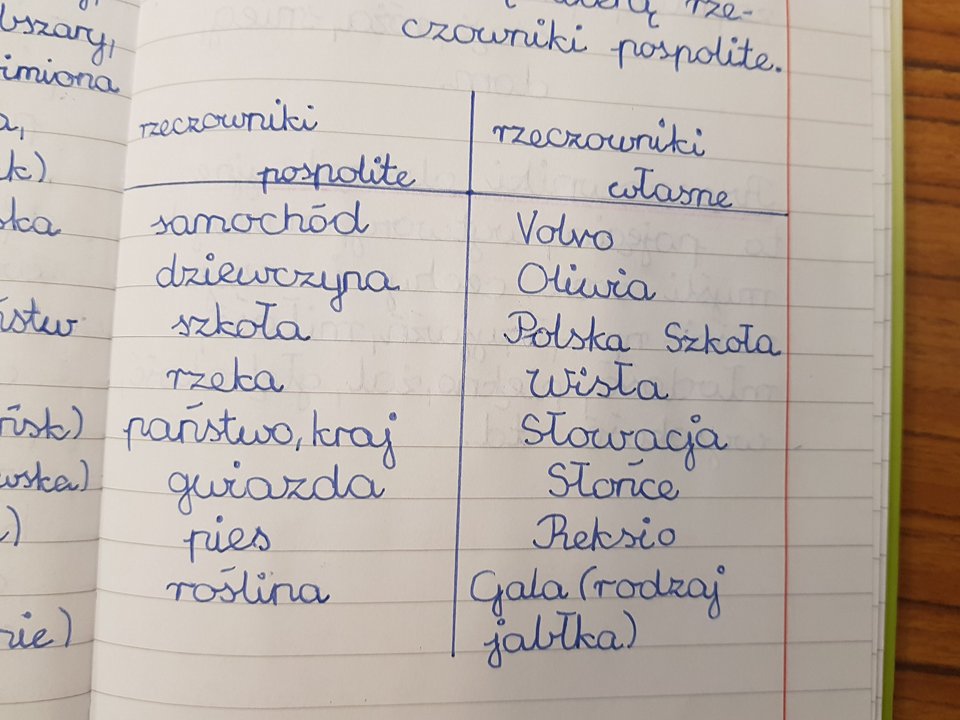 bszary,
imiona
k)
czowniki pospolite.
rzeczowniki pospolite | rzeczowniki własne
samochód | Volvo
dziewczyna | Oliwia
szkoła | Polska Szkoła
rzeka | Wisła
państwo, kraj | Słowacja
gwiazda | Słońce
pies | Reksio
roślina | Gala (rodzaj
jabłka)